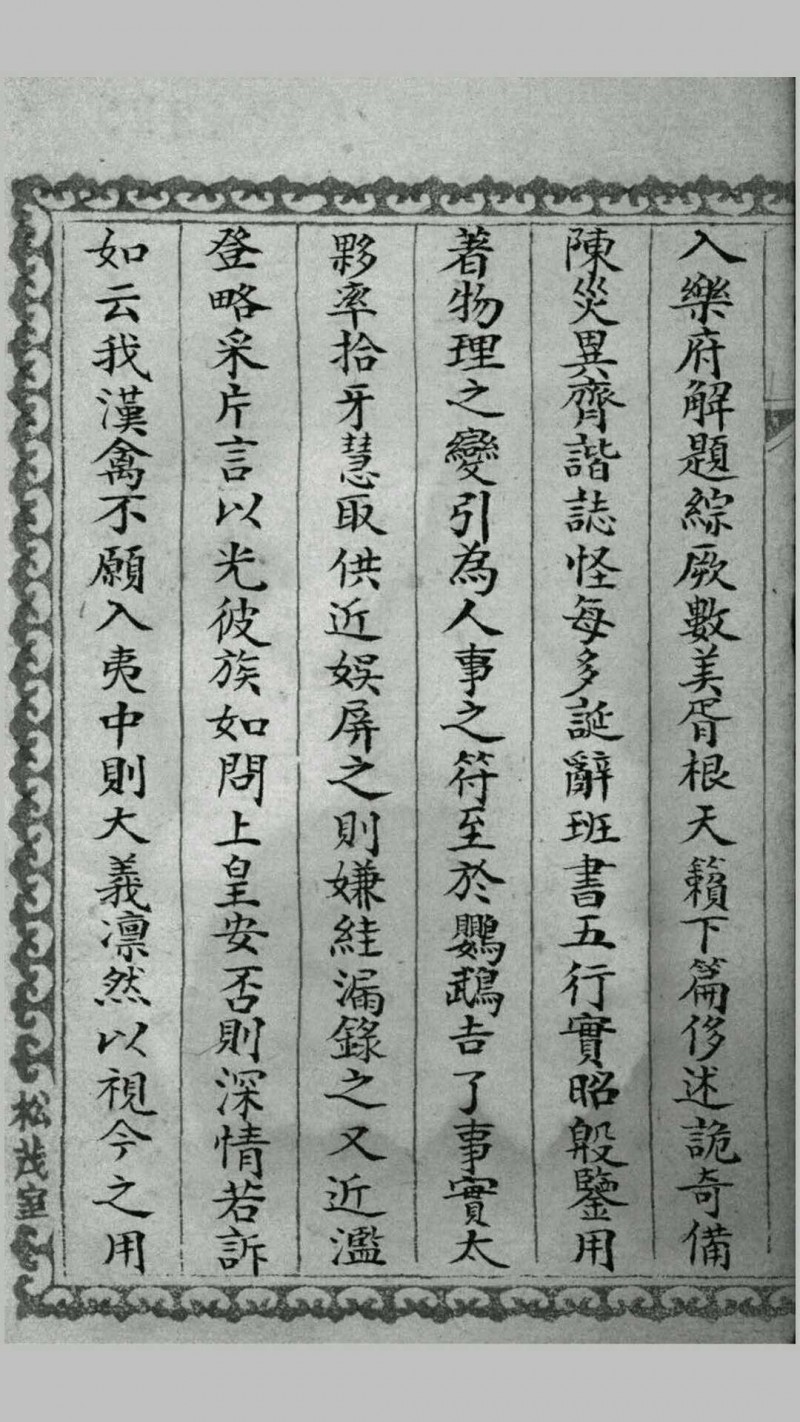 入樂府解題綜厥數美胥根天籟下篇侈述詭奇備
陳災異齊諧誌怪每多誕辭班書五行實昭殷鑒用
著物理之變引為人事之符至於鸚鵡吉了事實太
夥率拾牙慧取供近娛屏之則嫌絓漏錄之又近濫
登略采片言以光彼族如問上皇安否則深情若訴
如云我漢禽不願入夷中則大義凛然以視今之用
松茂室